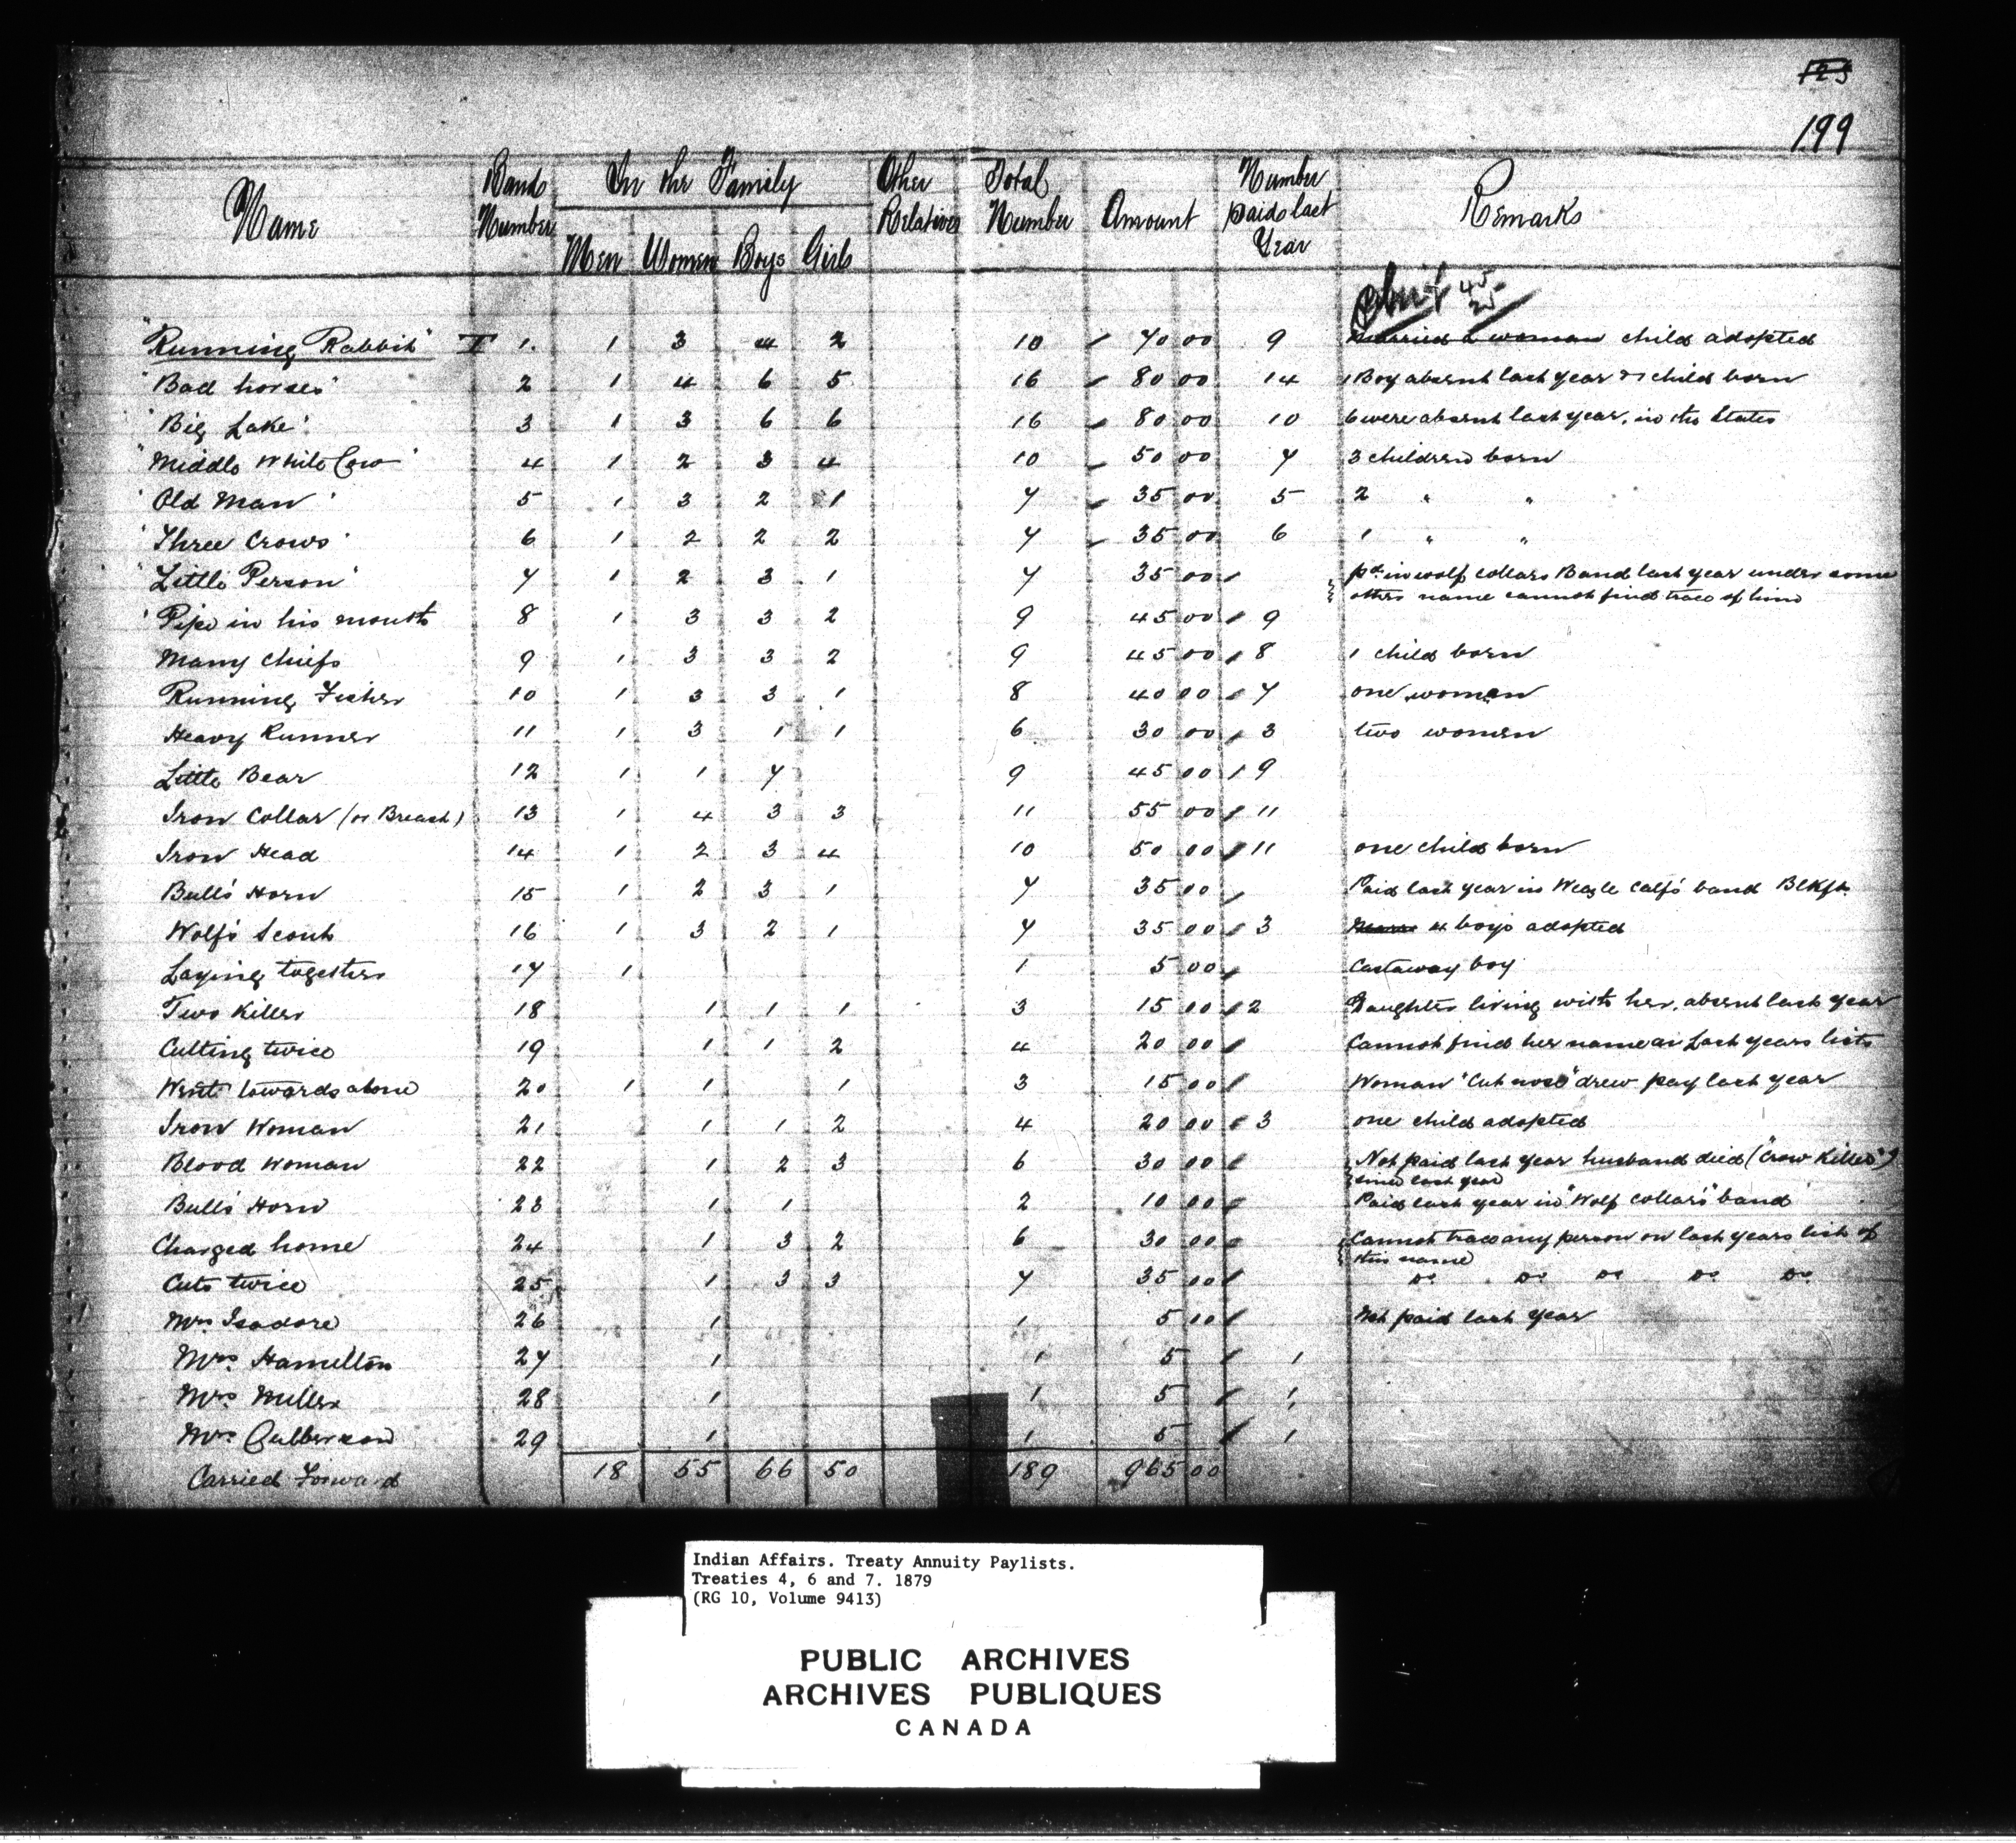 123
199
Name Band Number In the Family Other Relatives Total Number Amount Number paid last Year Remarks
Men Women Boys Girls
Chief 45 25
"Running Rabbit" 1. 1 3 4 2 10 70 00 9 Married 2 woman child adopted
"Bad horses" 2 1 4 6 5 16 80 00 14 1 Boy absent last year & 1 child born
"Big Lake" 3 1 3 6 6 16 80 00 10 6 were absent last year, in the States
"Middle White Cow" 4 1 2 3 4 10 50 00 7 3 children born
"Old Man" 5 1 3 2 1 7 35 00 5 2 " "
"Three Crows" 6 1 2 2 2 7 35 00 6 1 " "
"Little Person" 7 1 2 3 1 7 35 00 pd. in wolf collars Band last year under some
other name cannot find trace of him
"Pipe in his mouth 8 1 3 3 2 9 45 00 9
Many Chiefs 9 1 3 3 2 9 45 00 8 1 child born
Running Fisher 10 1 3 3 1 8 40 00 7 one women
Heavy Runner 11 1 3 1 1 6 30 00 3 two women
Little Bear 12 1 1 7 9 45 00 9
Iron Collar (or Breast) 13 1 4 3 3 11 55 00 11
Iron Head 14 1 2 3 4 10 50 00 11 one child born
Bull's Horn 15 1 2 3 1 7 35 00 Paid last year in Weazle Calf's band Blkft.
Wolf's Scout 16 1 3 2 1 7 35 00 3 4 boys adopted
Laying together 17 1 1 5 00 Castaway boy
Two Killer 18 1 1 1 3 15 00 2 Daughter living with her, absent last year
Cutting twice 19 1 1 2 4 20 00 Cannot find her name on Last years lists
Went towards alone 20 1 1 1 3 15 00 Woman "Cut nose" drew pay last year
Iron Woman 21 1 1 2 4 20 00 3 one child adopted
Blood Woman 22 1 2 3 6 30 00 Not paid last year husband died ("Crow Killer")
since last year
Bull's Horn 23 1 1 2 10 00 Paid last year in "Wolf Collar's" band
Charged home 24 1 3 2 6 30 00 Cannot trace any person on last years list of
this name
Cuts twice 25 1 3 3 7 35 00 Do Do Do Do Do
Mrs. Isadore 26 1 1 5 00 Not paid last year
Mrs. Hamilton 27 1 1 5 1
Mrs. Miller 28 1 1 5 1
Mrs. Culbertson 29 1 1 5 1
Carried Forward 18 55 66 50 189 965 00
Indian Affairs. Treaty Annuity Paylists.
Treaties 4, 6 and 7. 1879
(RG 10, Volume 9413)
PUBLIC ARCHIVES
ARCHIVES PUBLIQUES
CANADA